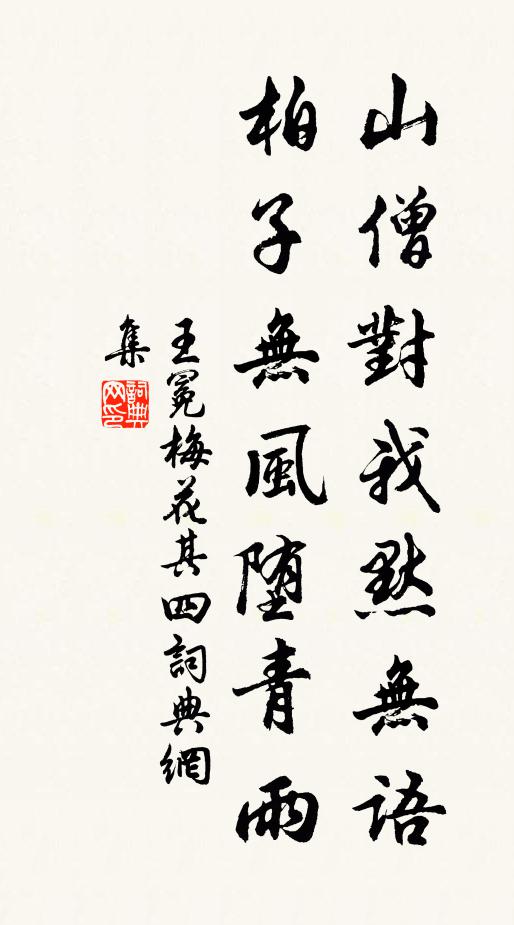 山僧對我默無語
柏子無風墮青雨
王冕梅花其四詞典網
集
詞典
网印